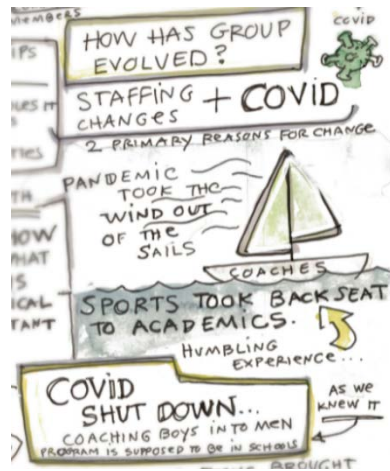 MEMBERS
HOW HAS GROUP
EVOLVED?
COVID
STAFFING
CHANGES
+ COVID
2 PRIMARY REASONS FOR CHANGE
PANDEMIC
TOOK THE
WIND OUT
OF THE
SAILS
COACHES
SPORTS TOOK BACKSEAT
TO ACADEMICS.
HUMBLING
EXPERIENCE...
COVID
SHUT DOWN...
COACHING BOYS INTO MEN
PROGRAM IS SUPPOSED TO BE IN SCHOOLS
AS WE
KNEW IT
BROUGHT